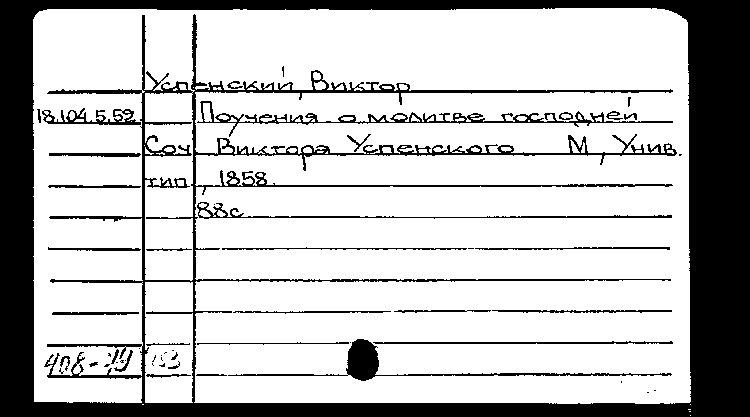 Успенский, Виктор
18.104.5.52 Поучения о молитве господней
Соч Виктора Успенского М, Унив.
тип, 1858.
88с
408-